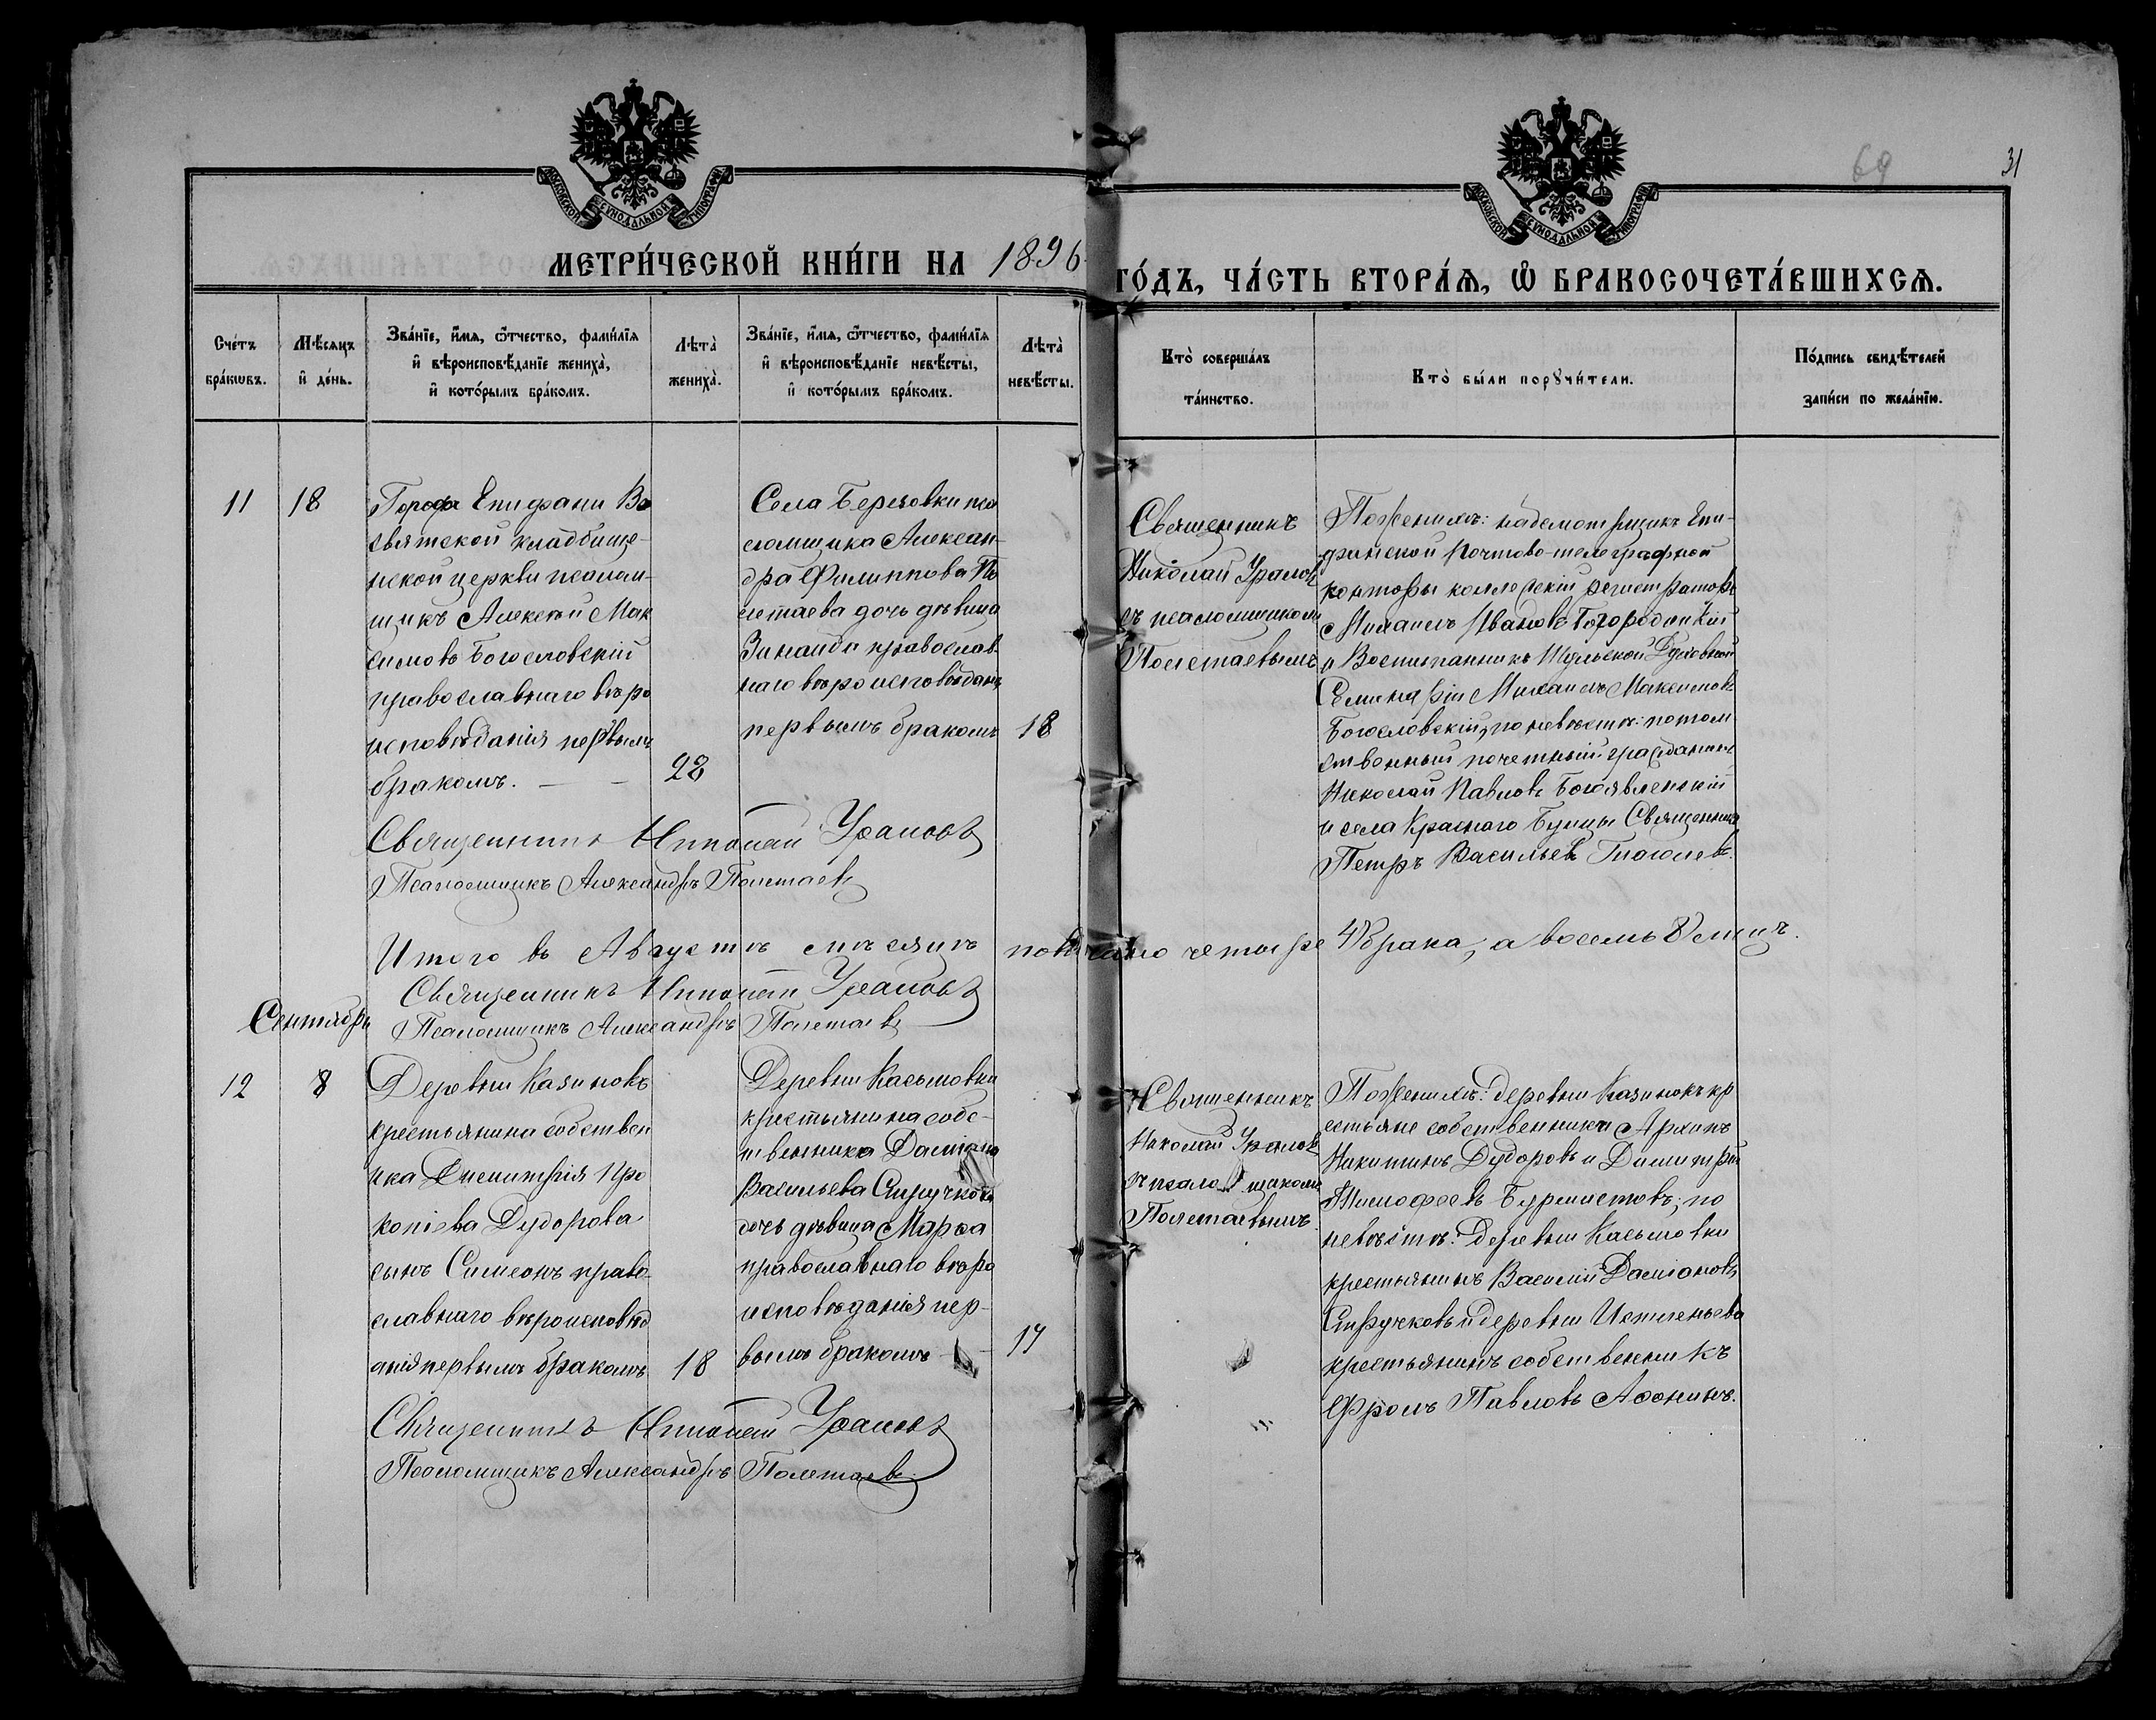 69
31
МОСКОВСКОЙ СѴНОДАЛЬНОЙ ТИПОГРАФІИ
МОСКОВСКОЙ СѴНОДАЛЬНОЙ ТИПОГРАФІИ
МЕТРИ́ЧЕСКОЙ КНИ́ГИ НА 1896
ГО́ДЪ, ЧА́СТЬ ВТОРА́Ѧ, Ѽ БРАКОСОЧЕТА́ВШИХСѦ.
Сче́тъ
бра́кѡвъ.
Мѣ́сяцъ
и҆ де́нь.
Зва́нїе, и҆́мѧ, ѻ҆́тчество, фами́лїѧ
и҆ вѣроисповѣ́данїе жениха̀,
и҆ кото́рымъ бра́комъ.
Лѣта̀
жениха̀.
Зва́нїе, и҆́мѧ, ѻ҆́тчество, фами́лїѧ
и҆ вѣроисповѣ́данїе невѣ́сты,
и҆ кото́рымъ бра́комъ.
Лѣта̀
невѣ́сты.
Кто̀ соверша́лъ
та́инство.
Кто̀ бы́ли порꙋчи́тели.
По́дпись свидѣ́телей
за́писи по жела́нїю.
11
18
Города Епифани Во
святской кладбище-
нской церкви псалом-
щикъ Алексѣй Мак
симовъ Богословскій
православнаго вѣро
исповѣданія первымъ
бракомъ. — —
28
Села Березовки пса
ломщика Алексан-
дра Филиппова По
летаева дочь дѣвица
Зинаида православ-
наго вѣроисповѣданія
первымъ бракомъ
18
Священникъ
Николай Ураловъ
съ псаломщикомъ
Полетаевымъ
По женихѣ: надсмотрщикъ Епи-
фанской почтово-телеграфной
конторы коллежскій регистраторъ
Михаилъ Ивановъ Богородицкій
и Воспитанникъ Тульской Духовной
Семинаріи Михаилъ Максимовъ
Богословскій, по невѣстѣ: потом-
ственный почетный гражданинъ
Николай Павловъ Богоявленскій
и села Краснаго Буйцы Священникъ
Петръ Васильевъ Глаголевъ.
Священникъ Николай Ураловъ
Псаломщикъ Александръ Полетаевъ
Итого въ Августѣ мѣсяцѣ повѣнчано четыре 4 брака, а восемь 8 лицъ.
Священникъ Николай Ураловъ
Псаломщикъ Александръ Полетаевъ
Сентября
12
8
Деревни Казинокъ
крестьянина собствен
ника Димитрія Про
копіева Дудорова
сынъ Симеонъ право-
славнаго вѣроисповѣд
анія первымъ бракомъ
18
Деревни Касьмовки
крестьянина собс-
твенника Даміана
Васильева Стручкова
дочь дѣвица Марѳа
православнаго вѣро
исповѣданія пер-
вымъ бракомъ
17
Священникъ
Николай Ураловъ
съ псаломщикомъ
Полетаевымъ
По женихѣ: деревни Казинокъ кр
естьяне собственники Архипъ
Никитинъ Дудоровъ и Димитрій
Тимофеевъ Бурмистовъ; по
невѣстѣ: деревни Касьмовки
крестьянинъ Василій Даміановъ
Стручковъ и деревни Истленьева
крестьянинъ собственникъ
Фролъ Павловъ Аѳонинъ.
Священникъ Николай Ураловъ
Псаломщикъ Александръ Полетаевъ.